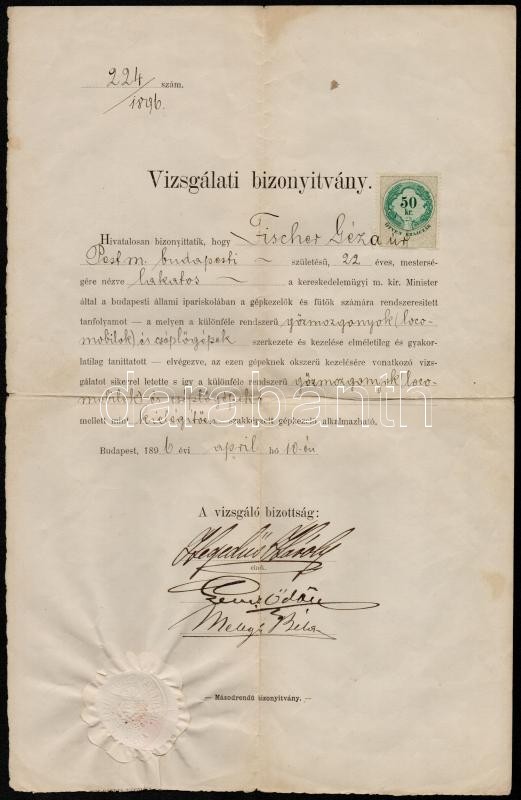 224 szám.
1896.
Vizsgálati bizonyitvány.
50
kr.
ÖTVEN KRAJCZÁR
Hivatalosan bizonyittatik, hogy Fischer Géza úr
Pest m. budapesti – születésü, 22 éves, mestersé-
gére nézve lakatos – a kereskedelemügyi m. kir. Minister
által a budapesti állami ipariskolában a gépkezelők és fűtők számára rendszeresitett
tanfolyamot — a melyen a különféle rendszerü gőzmozgonyok (loco-
mobilok) és cséplőgépek szerkezete és kezelése elméletileg és gyakor-
latilag tanittatott — elvégezve, az ezen gépeknek okszerü kezelésére vonatkozó vizs-
gálatot sikerrel letette s igy a különféle rendszerü gőzmozgonyok (loco-
mobilok) és
mellett mint kielégitően szakképzett gépkezelő alkalmazható.
Budapest, 1896 évi april hó 10-én
darabanth
A vizsgáló bizottság:
Hegedüs Károly
elnök.
Ödön
Béla
— Másodrendü bizonyitvány. —